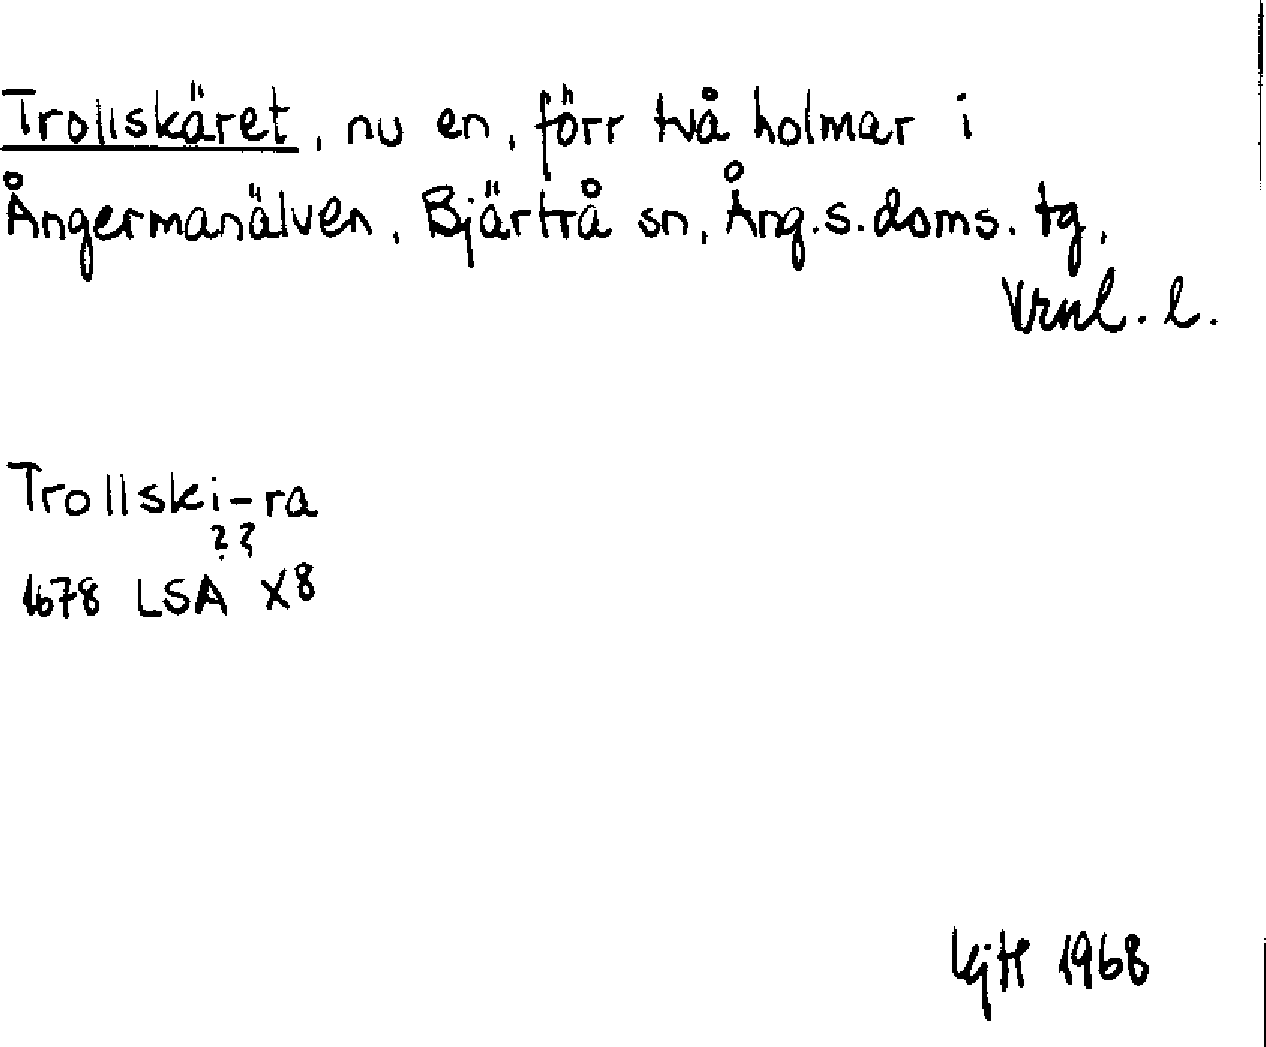 Trollskäret, nu en, förr två holmar i
Ångermanälven, Bjärtrå sn, Ång.s.doms.tg,
Vrnl. l.
Trollski-ra
??
1678 LSA X8
1968